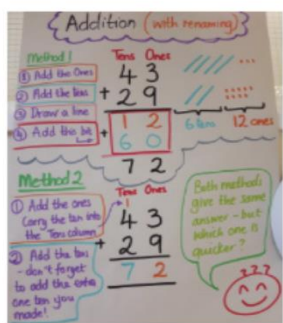 Addition (with renaming)
Method 1
Tens Ones
① Add the Ones
② Add the tens
③ Draw a line
④ Add this bit
4 3
+ 2 9
1 2
+ 6 0
7 2
6 tens
12 ones
Method 2
① Add the ones
Carry the ten into
the Tens column
② Add the tens
- don't forget
to add the extra
one ten you
made!
Tens Ones
1
4 3
+ 2 9
7 2
Both methods
give the same
answer - but
which one is
quicker?
???